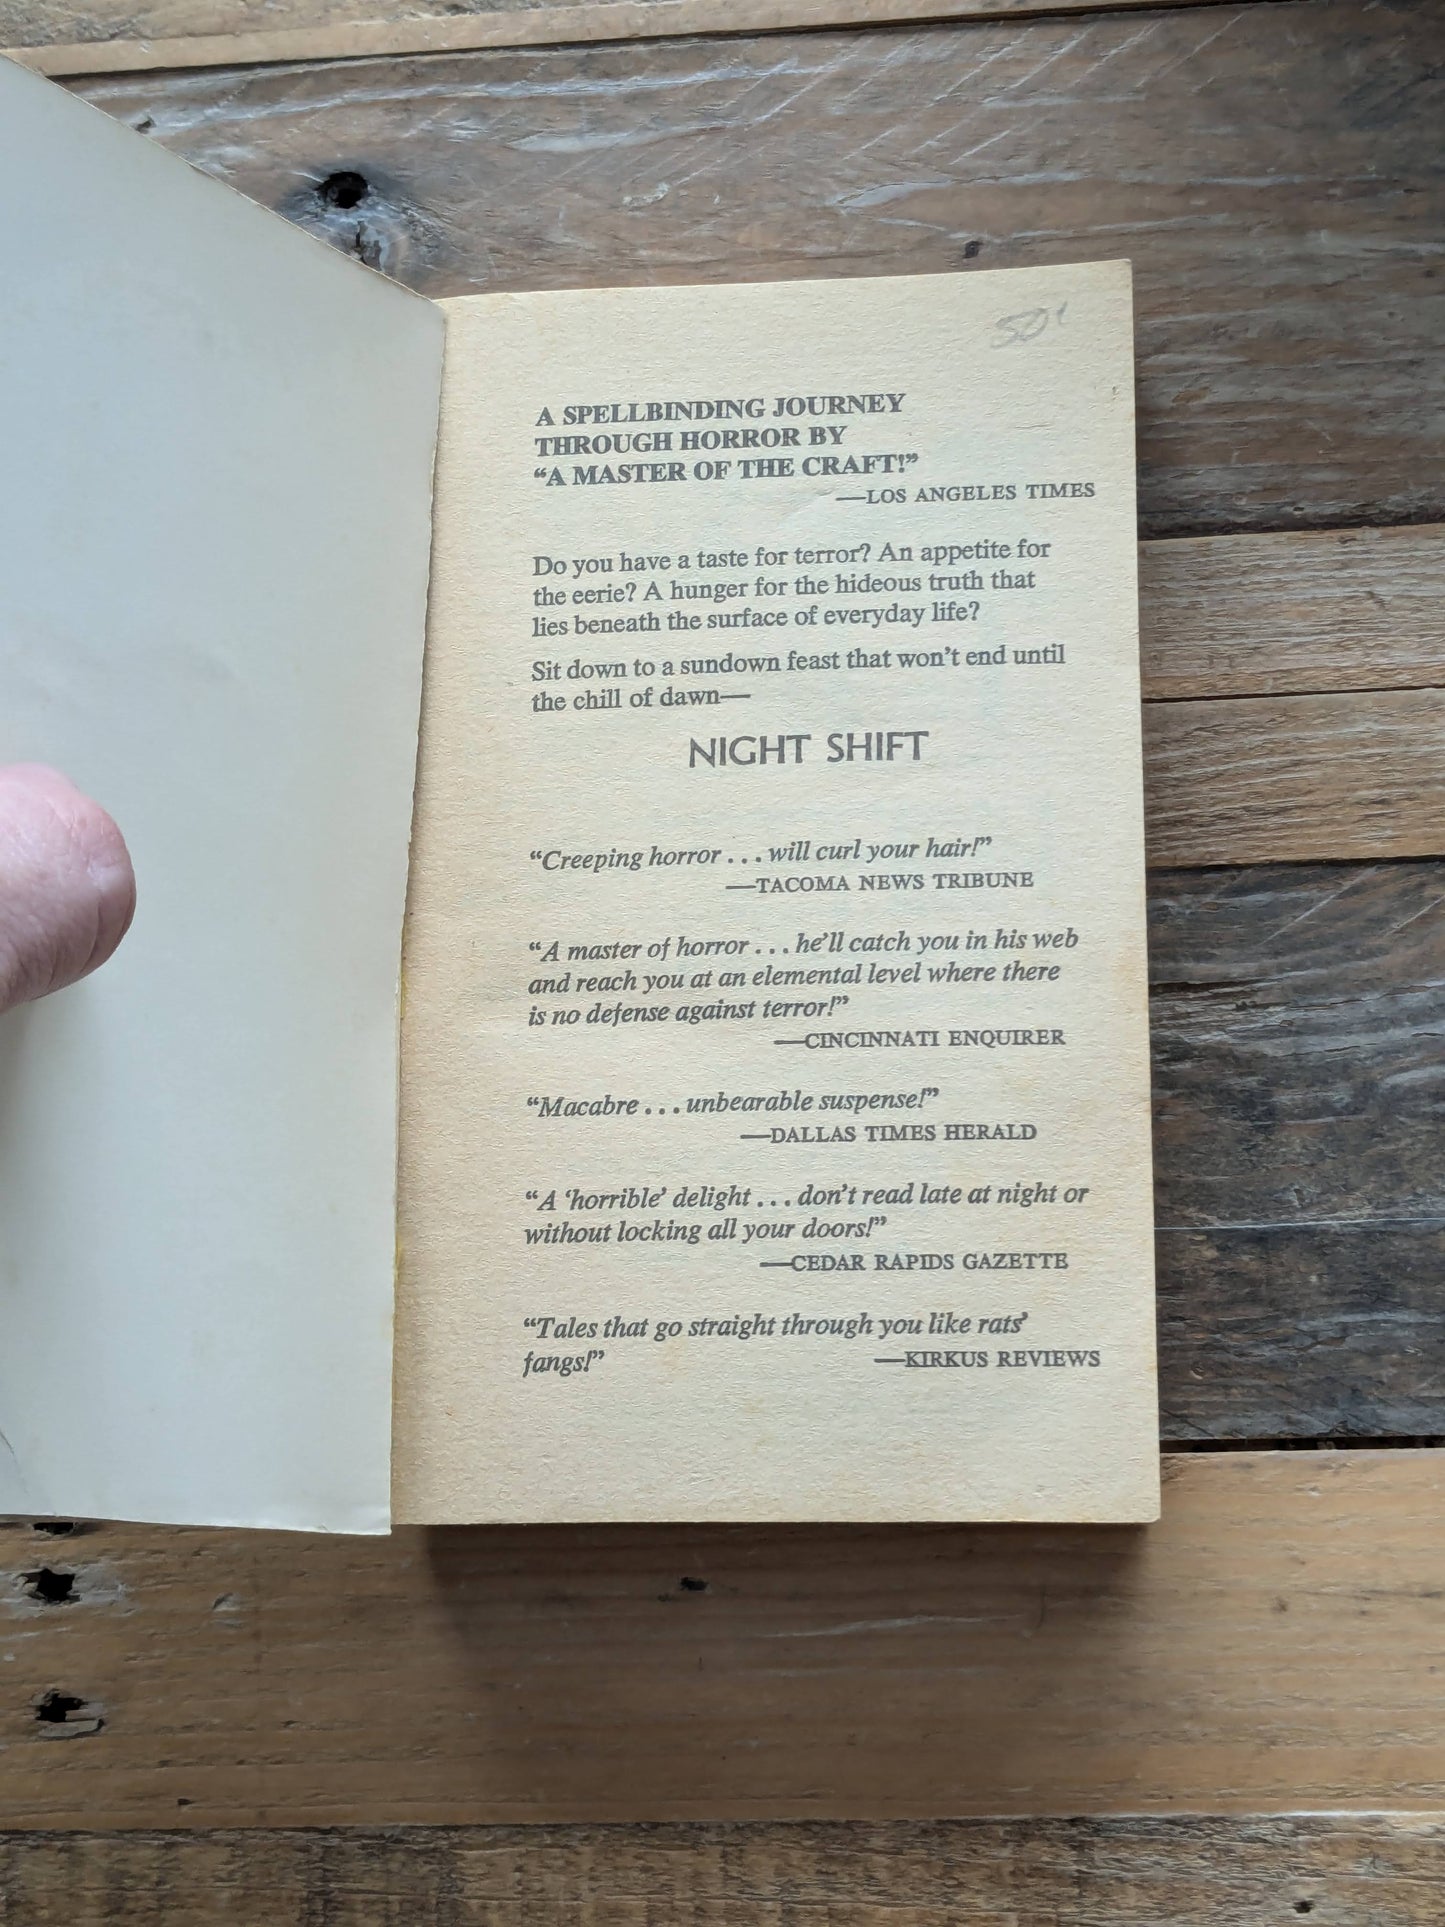 50¢
A SPELLBINDING JOURNEY
THROUGH HORROR BY
“A MASTER OF THE CRAFT!”
—LOS ANGELES TIMES
Do you have a taste for terror? An appetite for
the eerie? A hunger for the hideous truth that
lies beneath the surface of everyday life?
Sit down to a sundown feast that won’t end until
the chill of dawn—
NIGHT SHIFT
“Creeping horror . . . will curl your hair!”
—TACOMA NEWS TRIBUNE
“A master of horror . . . he’ll catch you in his web
and reach you at an elemental level where there
is no defense against terror!”
—CINCINNATI ENQUIRER
“Macabre . . . unbearable suspense!”
—DALLAS TIMES HERALD
“A ‘horrible’ delight . . . don’t read late at night or
without locking all your doors!”
—CEDAR RAPIDS GAZETTE
“Tales that go straight through you like rats’
fangs!” —KIRKUS REVIEWS